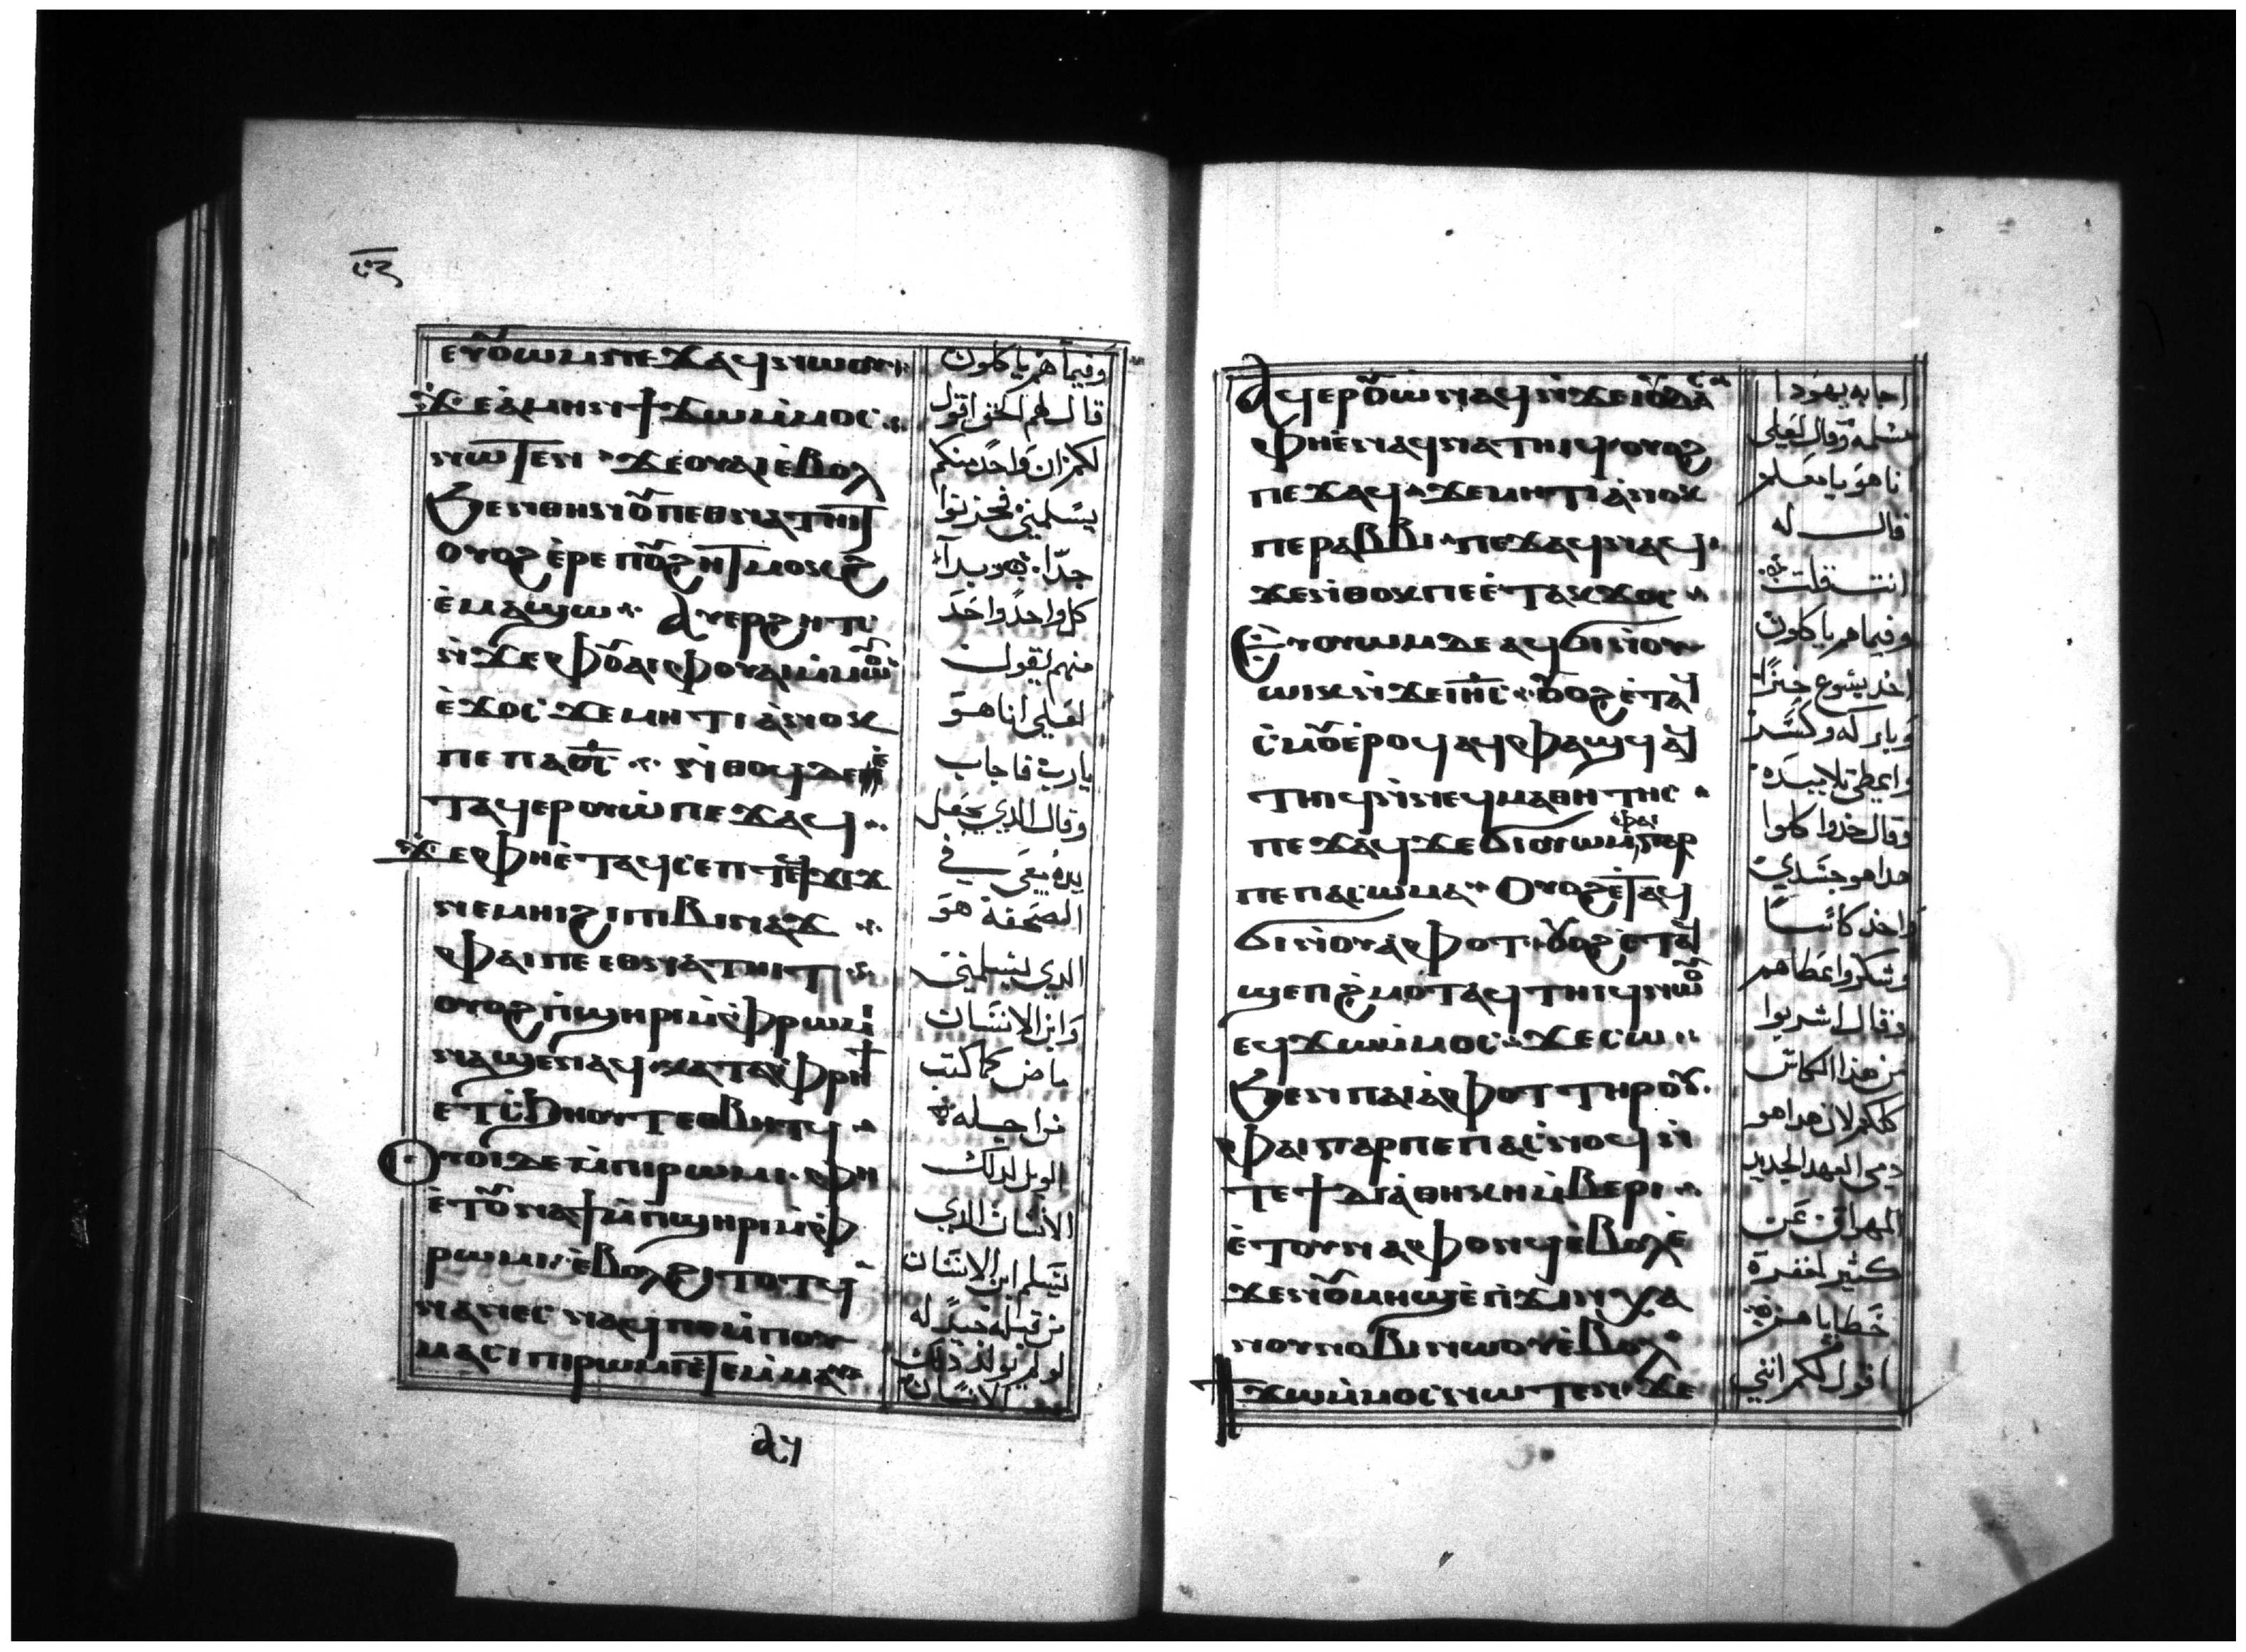 ⲉⲩⲟⲩⲱⲙ ⲡⲉϫⲁϥ ⲛⲱⲟⲩ
ϫⲉ ⲁ̀ⲙⲏⲛ ϯϫⲱ ⲙ̀ⲙⲟⲥ
ⲛⲱⲧⲉⲛ ϫⲉ ⲟⲩⲁⲓ ⲉ̀ⲃⲟⲗ
ϧⲉⲛ ⲑⲏⲛⲟⲩ ⲡⲉⲑⲛⲁⲧⲏⲓⲧ
ⲟⲩⲟϩ ⲉ̀ⲣⲉ ⲡⲟⲩϩⲏⲧ ⲙⲟⲕϩ
ⲉ̀ⲙⲁϣⲱ ⲁⲩⲉⲣϩⲏⲧⲥ
ⲛ̀ϫⲉ ⲫⲟⲩⲁⲓ ⲫⲟⲩⲁⲓ ⲙ̀ⲙⲱⲟⲩ
ⲉ̀ϫⲟⲥ ϫⲉ ⲙⲏⲧⲓ ⲁ̀ⲛⲟⲕ
ⲡⲉ ⲡⲁⲟ̅ⲥ̅ ⲛ̀ⲑⲟϥ ⲇⲉ ⲉ̀
ⲧⲁϥⲉⲣⲟⲩⲱ̀ ⲡⲉϫⲁϥ
ϫⲉ ⲫⲏⲉ̀ⲧⲁϥⲥⲉⲡ ⲧⲉϥϫⲓϫ
ⲛⲉⲙⲏⲓ ϩⲓ ⲡⲓⲃⲓⲛⲁϫ
ⲫⲁⲓ ⲡⲉⲑⲛⲁⲧⲏⲓⲧ
ⲟⲩⲟϩ ⲡ̀ϣⲏⲣⲓ ⲙ̀ⲫⲣⲱⲙⲓ
ⲛⲁϣⲉⲛⲁϥ ⲕⲁⲧⲁ ⲫⲣⲏϯ
ⲉⲧⲥ̀ϧⲏⲟⲩⲧ ⲉⲑⲃⲏⲧϥ
ⲟⲩⲟⲓ ⲇⲉ ⲙ̀ⲡⲓⲣⲱⲙⲓ ⲫⲏ
ⲉ̀ⲧⲟⲩⲛⲁϯ ⲙ̀ⲡϣⲏⲣⲓ ⲙ̀ⲫ
ⲣⲱⲙⲓ ⲉ̀ⲃⲟⲗ ϩⲓⲧⲟⲧϥ
ⲛⲁⲛⲉⲥ ⲛⲁϥ ⲡⲉ ⲙ̀ⲡⲟⲩ
ⲙⲁⲥ ⲡⲓⲣⲱⲙⲓ ⲉ̀ⲧⲉⲙⲙⲁⲩ
ⲁϥ
وفيما هم ياكلون
قال لهم الحق اقول
لكم ان واحد منكم
يسلمني فحزنوا
جدا وبدا
كل واحد واحد
منهم يقول
لعلي انا هو
يارب فاجاب
وقال الذي يجعل
يده معي في
الصحفة هو
الذي يسلمني
وابن الانسان
ماض كما كتب
من اجله
الويل لذلك
الانسان الذي
يسلم ابن الانسان
من قبله خير له
لو لم يولد ذلك
الانسان
ⲁϥⲉⲣⲟⲩⲱ̀ ⲛⲁϥ ⲛ̀ϫⲉ ⲓⲟⲩⲇⲁⲥ
ⲫⲏⲉⲛⲁϥⲛⲁⲧⲏⲓϥ ⲟⲩⲟϩ
ⲡⲉϫⲁϥ ϫⲉ ⲙⲏⲧⲓ ⲁ̀ⲛⲟⲕ
ⲡⲉ ⲣⲁⲃⲃⲓ ⲡⲉϫⲁϥ ⲛⲁϥ
ϫⲉ ⲛ̀ⲑⲟⲕ ⲡⲉ ⲉ̀ⲧⲁⲕϫⲟⲥ
ⲉⲩⲟⲩⲱⲙ ⲇⲉ ⲁϥϭⲓ ⲛ̀ⲟⲩ
ⲱⲓⲕ ⲛ̀ϫⲉ ⲓⲏ̅ⲥ̅ ⲟⲩⲟϩ ⲉ̀ⲧⲁϥ
ⲥ̀ⲙⲟⲩ ⲉ̀ⲣⲟϥ ⲁϥⲫⲁϣϥ ⲁϥ
ⲧⲏⲓϥ ⲛ̀ⲛⲉϥⲙⲁⲑⲏⲧⲏⲥ
ⲡⲉϫⲁϥ ϫⲉ ϭⲓ ⲟⲩⲱⲙ ⲫⲁⲓ ⲅⲁⲣ
ⲡⲉ ⲡⲁⲥⲱⲙⲁ ⲟⲩⲟϩ ⲉ̀ⲧⲁϥ
ϭⲓ ⲛ̀ⲟⲩⲁ̀ⲫⲟⲧ ⲟⲩⲟϩ ⲉ̀ⲧⲁϥ
ϣⲉⲡϩ̀ⲙⲟⲧ ⲁϥⲧⲏⲓϥ ⲛⲱⲟⲩ
ⲉϥϫⲱ ⲙ̀ⲙⲟⲥ ϫⲉ ⲥⲱ
ϧⲉⲛ ⲡⲁⲓⲁ̀ⲫⲟⲧ ⲧⲏⲣⲟⲩ
ⲫⲁⲓ ⲅⲁⲣ ⲡⲉ ⲡⲁⲥ̀ⲛⲟϥ ⲛ̀
ⲧⲉ ϯⲇⲓⲁ̀ⲑⲏⲕⲏ ⲙ̀ⲃⲉⲣⲓ
ⲉ̀ⲧⲟⲩⲛⲁⲫⲟⲛϥ ⲉ̀ⲃⲟⲗ ⲉ̀
ϫⲉⲛ ⲟⲩⲙⲏϣ ⲉ̀ⲡ̀ϫⲓⲛⲭⲁ
ⲛⲟⲩⲛⲟⲃⲓ ⲛⲱⲟⲩ ⲉ̀ⲃⲟⲗ
ϯϫⲱ ⲙ̀ⲙⲟⲥ ⲛⲱⲧⲉⲛ ϫⲉ
اجابه يهودا
مسلمه وقال لعلي
انا هو يا معلم
قال له
انت قلت
وفيما هم ياكلون
اخذ يسوع خبزا
وباركه وكسر
واعطى تلاميذه
وقال خذوا كلوا
هذا هو جسدي
واخذ كاسا
وشكر واعطاهم
وقال اشربوا
من هذا الكاس
كلكم لان هذا هو
دمي العهد الجديد
المهراق عن
كثير لمغفرة
خطاياهم
اقول لكم انني